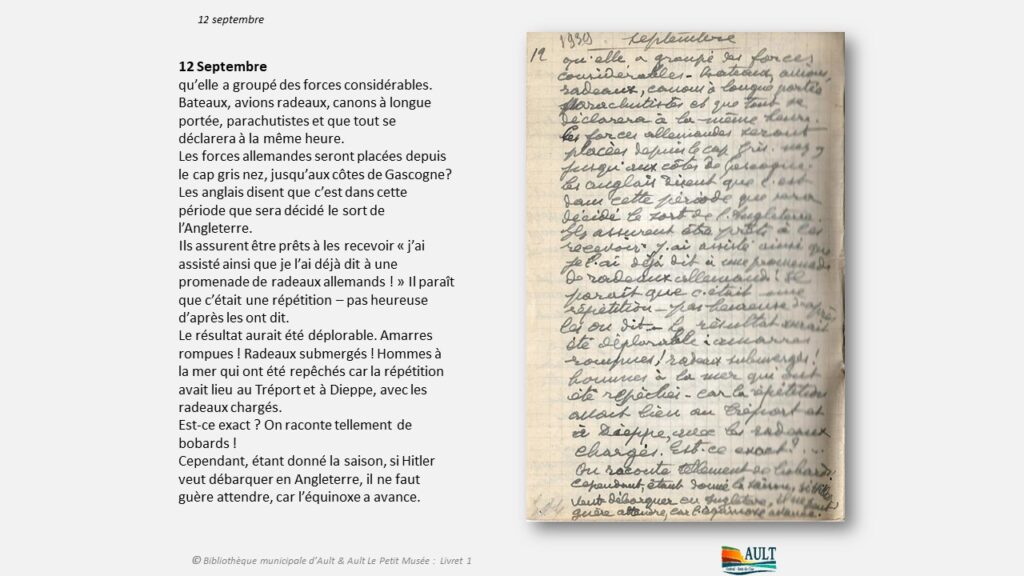 12 septembre
12 Septembre
qu'elle a groupé des forces considérables.
Bateaux, avions radeaux, canons à longue
portée, parachutistes et que tout se
déclarera à la même heure.
Les forces allemandes seront placées depuis
le cap gris nez, jusqu'aux côtes de Gascogne?
Les anglais disent que c'est dans cette
période que sera décidé le sort de
l'Angleterre.
Ils assurent être prêts à les recevoir « j'ai
assisté ainsi que je l'ai déjà dit à une
promenade de radeaux allemands ! » Il paraît
que c'était une répétition – pas heureuse
d'après les ont dit.
Le résultat aurait été déplorable. Amarres
rompues ! Radeaux submergés ! Hommes à
la mer qui ont été repêchés car la répétition
avait lieu au Tréport et à Dieppe, avec les
radeaux chargés.
Est-ce exact ? On raconte tellement de
bobards !
Cependant, étant donné la saison, si Hitler
veut débarquer en Angleterre, il ne faut
guère attendre, car l'équinoxe a avance.
© Bibliothèque municipale d'Ault & Ault Le Petit Musée : Livret 1
septembre
12
qu'elle a groupé des forces
considérables - Bateaux, avions,
radeaux, canons à longue portée
parachutistes et que tout se
déclarera à la même heure.
Les forces allemandes seront
placées depuis le cap Gris-nez
jusqu'aux côtes de Gascogne.
les anglais disent que c'est
dans cette période que sera
décidé le sort de l'Angleterre.
Ils assurent être prêts à les
recevoir. j'ai assisté ainsi que
je l'ai déjà dit à une promenade
de radeaux allemands ! Il
paraît que c'était une
répétition - pas heureuse d'après
les on dit - le résultat aurait
été déplorable : amarres
rompues ! radeaux submergés !
hommes à la mer qui ont
été repêchés - car la répétition
avait lieu au Tréport et
à Dieppe, avec les radeaux
chargés. Est-ce exact ? ...
On raconte tellement de bobards !
Cependant, étant donné la saison, si Hitler
veut débarquer en Angleterre, il ne faut
guère attendre, car l'équinoxe avance.
AULT